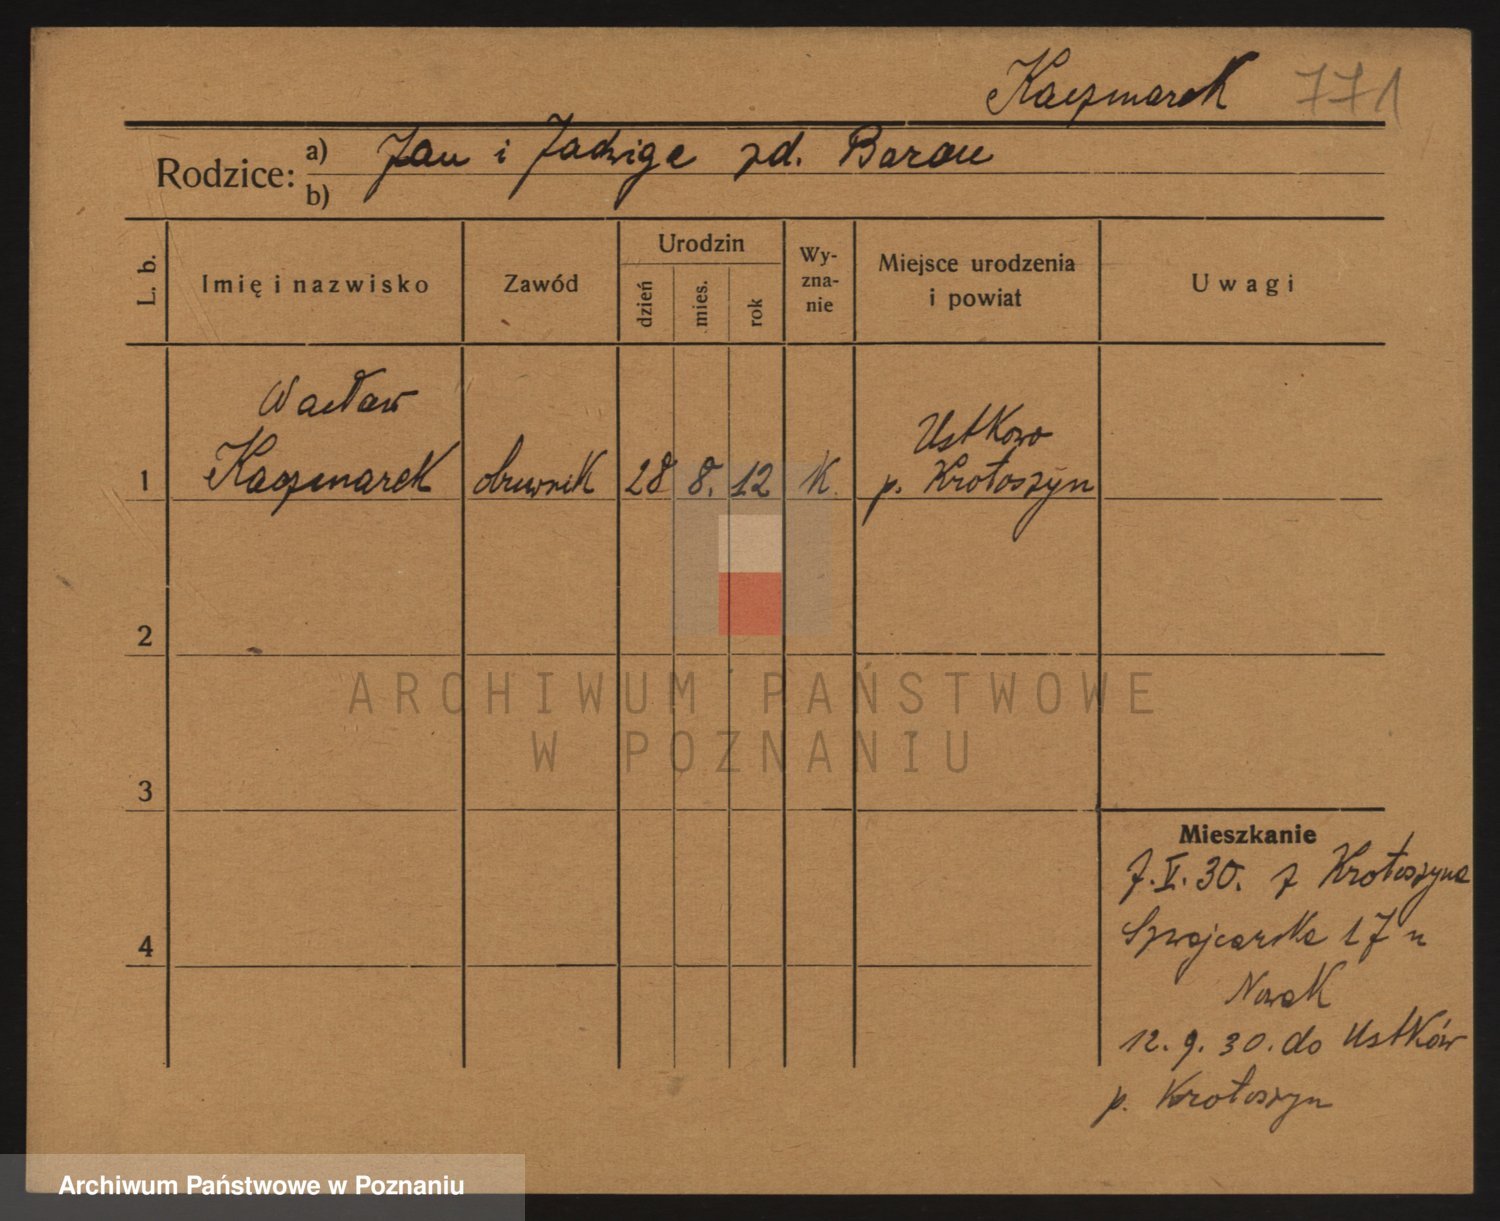 Kaczmarek 771
Rodzice: a) Jan i Jadwiga zd. Baran
b)
L. b. Imię i nazwisko Zawód Urodzin dzień mies. rok Wy-zna-nie Miejsce urodzenia i powiat Uwagi
Wacław
Ustkowo
1 Kaczmarek obuwnik 28 8. 12 K. p. Krotoszyn
2
ARCHIWUM PAŃSTWOWE
W POZNANIU
3
Mieszkanie
7.V.30. z Krotoszyna
4 Szwajcarska 17 u
Nowak
12.9.30. do Ustków
p. Krotoszyn
Archiwum Państwowe w Poznaniu